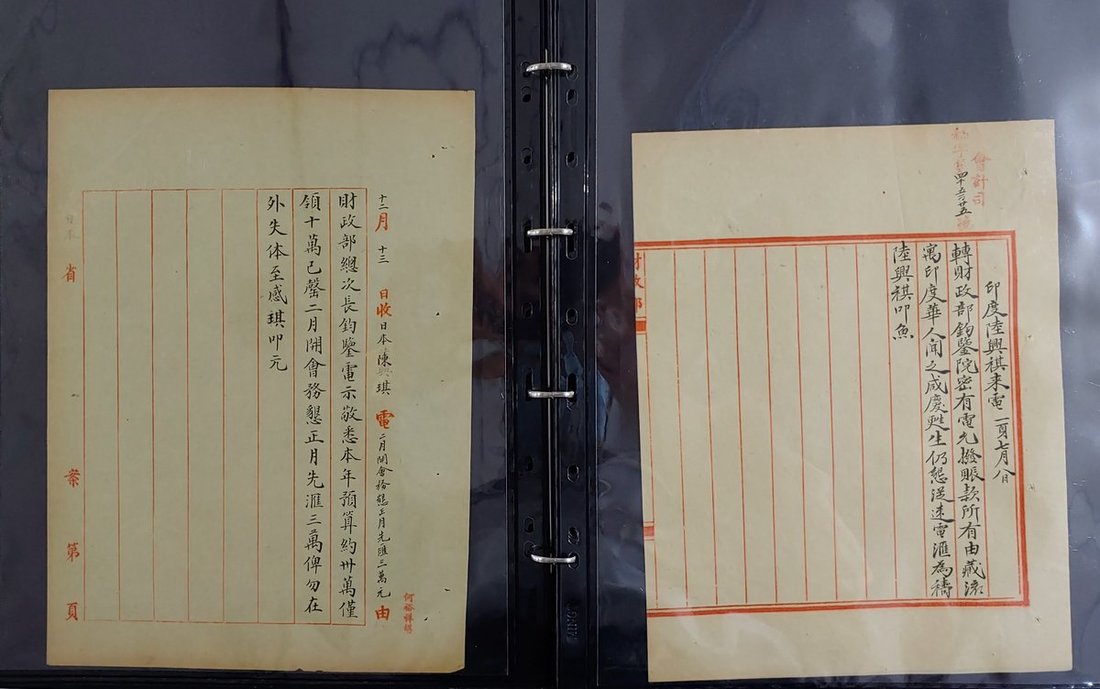 十二月十三日收日本陳興琪電二月開會務懇正月先匯三萬元由
財政部總次長鈞鑒電示敬悉本年預算約卅萬僅
領十萬已罄二月開會務懇正月先滙三萬俾勿在
外失体至感琪叩元
日本省 案第 頁
會計司
印度陸興祺来電
轉財政部鈞鑒院密有電允撥賬款所有由藏流
寓印度華人聞之咸慶甦生仍懇迅速電滙為禱
陸興祺叩魚
財政部